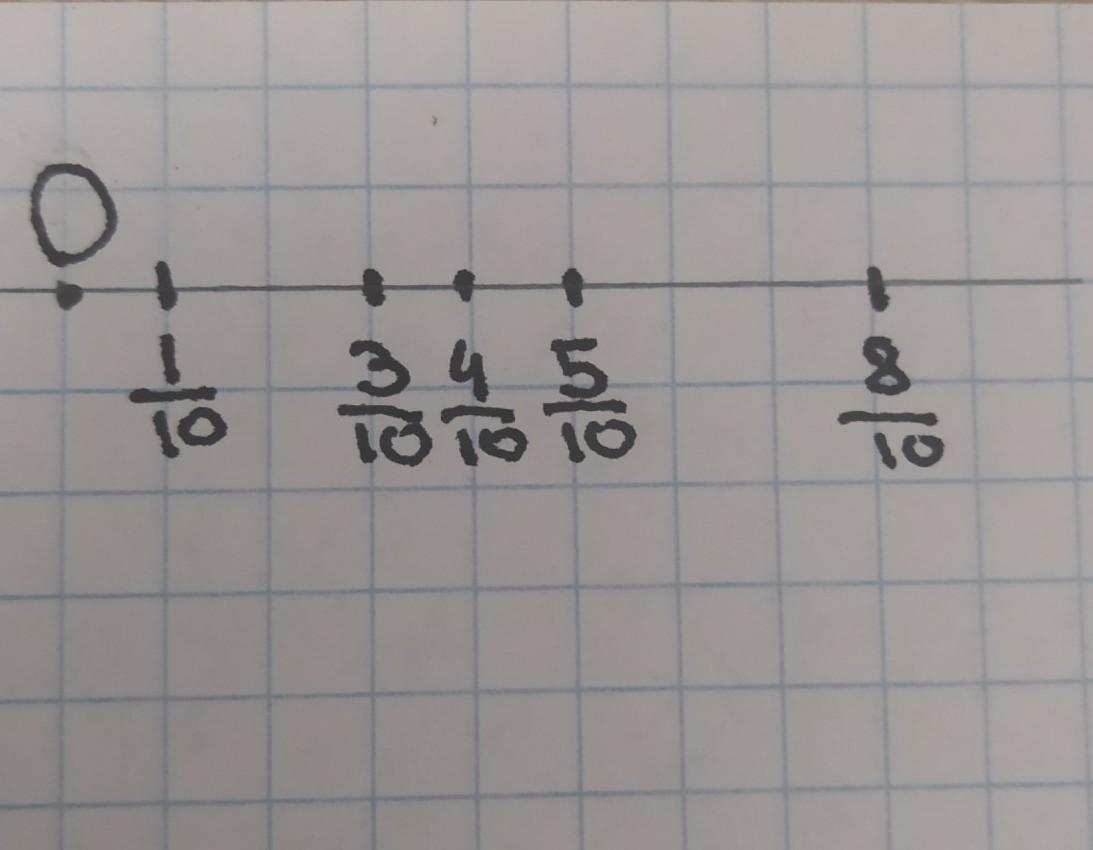 0
1/10 3/10 4/10 5/10 8/10